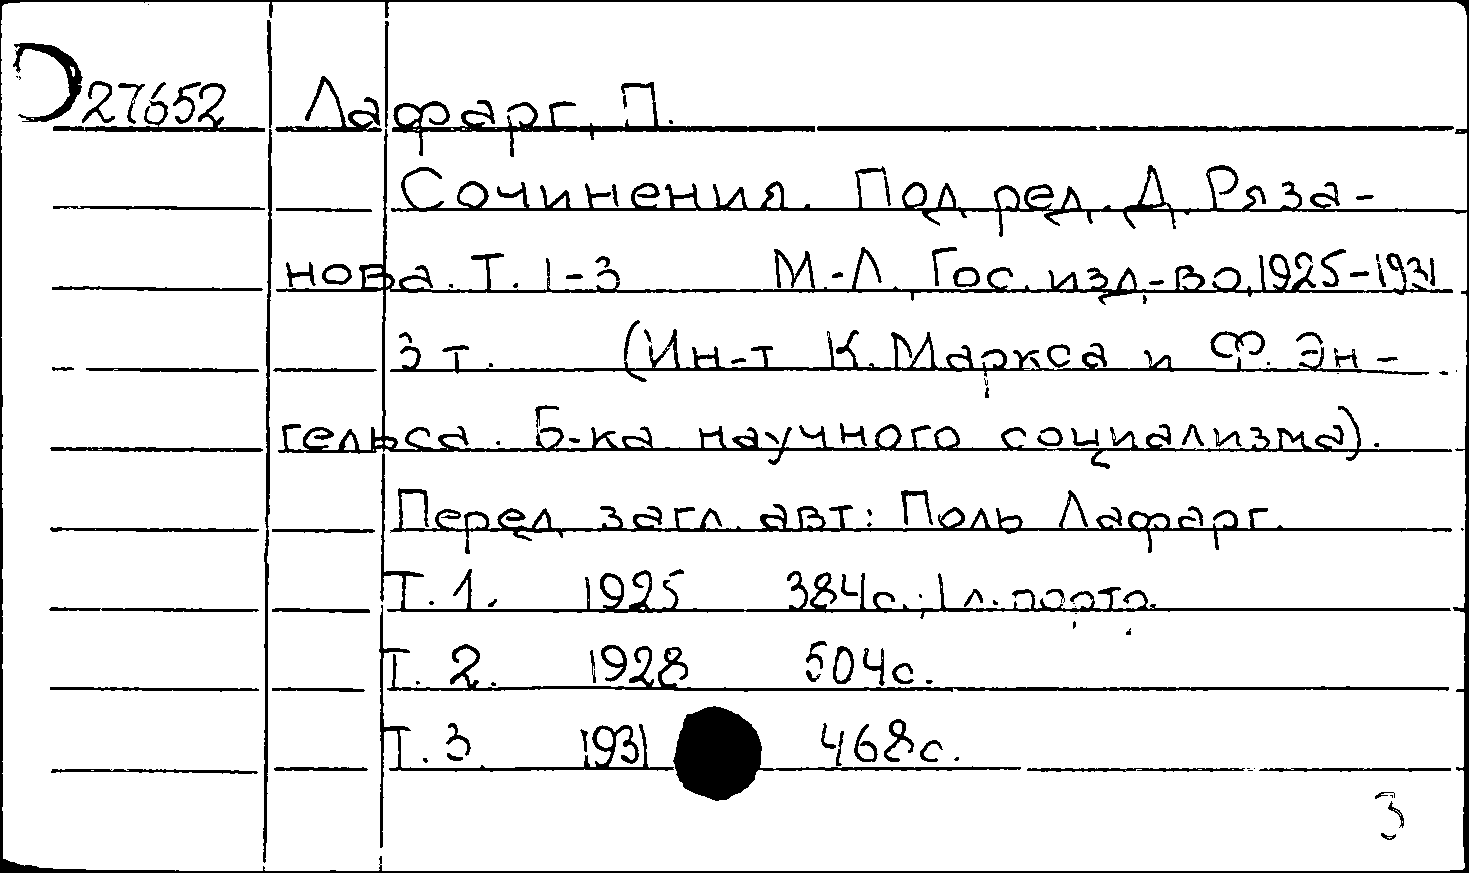 27652 Лафарг, П.
Сочинения. Под ред. Д. Ряза-
нова. Т. 1-3 М.-Л., Гос. изд-во, 1925-1931
3 т. (Ин-т К. Маркса и Ф. Эн-
гельса. Б-ка научного социализма).
Перед загл. авт: Поль Лафарг.
Т. 1. 1925 384с.; 1 л. портр.
Т. 2. 1928 504с.
Т. 3. 1931 468с.
3